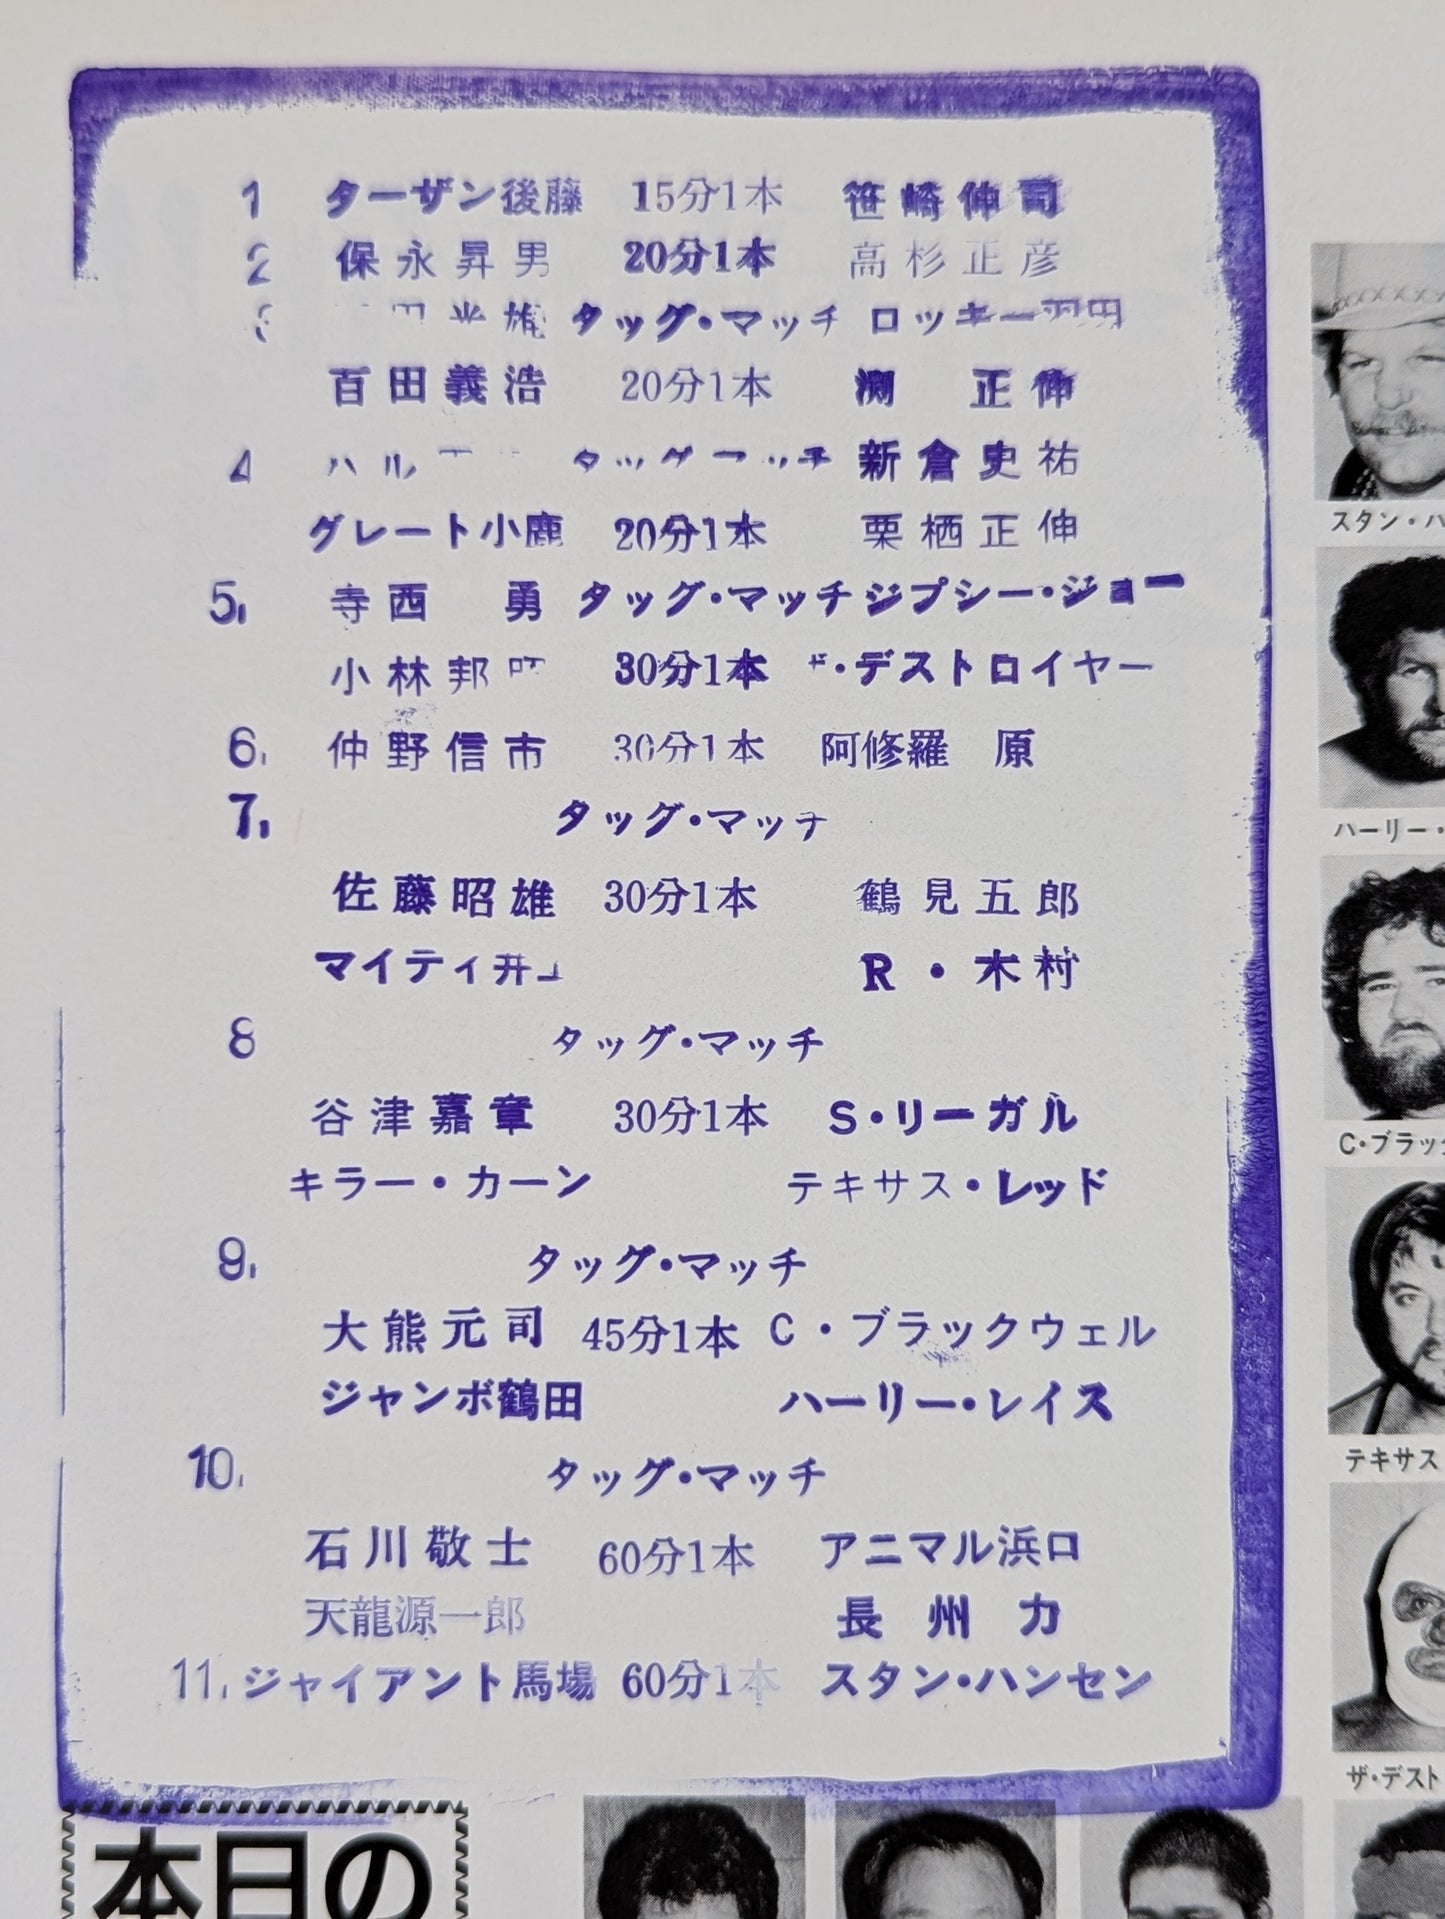 1 ターザン後藤 15分1本 笹崎伸司
2 保永昇男 20分1本 高杉正彦
3 光雄 タッグ・マッチ ロッキー羽田
百田義浩 20分1本 渕 正伸
4 ハル タッグ・マッチ 新倉史祐
グレート小鹿 20分1本 栗栖正伸
5. 寺西 勇 タッグ・マッチ ジプシー・ジョー
小林邦 30分1本 ド・デストロイヤー
6. 仲野信市 30分1本 阿修羅 原
7. タッグ・マッチ
佐藤昭雄 30分1本 鶴見五郎
マイティ井上 R・木村
8 タッグ・マッチ
谷津嘉章 30分1本 S・リーガル
キラー・カーン テキサス・レッド
9. タッグ・マッチ
大熊元司 45分1本 C・ブラックウェル
ジャンボ鶴田 ハーリー・レイス
10. タッグ・マッチ
石川敬士 60分1本 アニマル浜口
天龍源一郎 長州 力
11. ジャイアント馬場 60分1本 スタン・ハンセン
スタン・ハ
ハーリー・
C・ブラック
テキサス
ザ・デスト
本日の